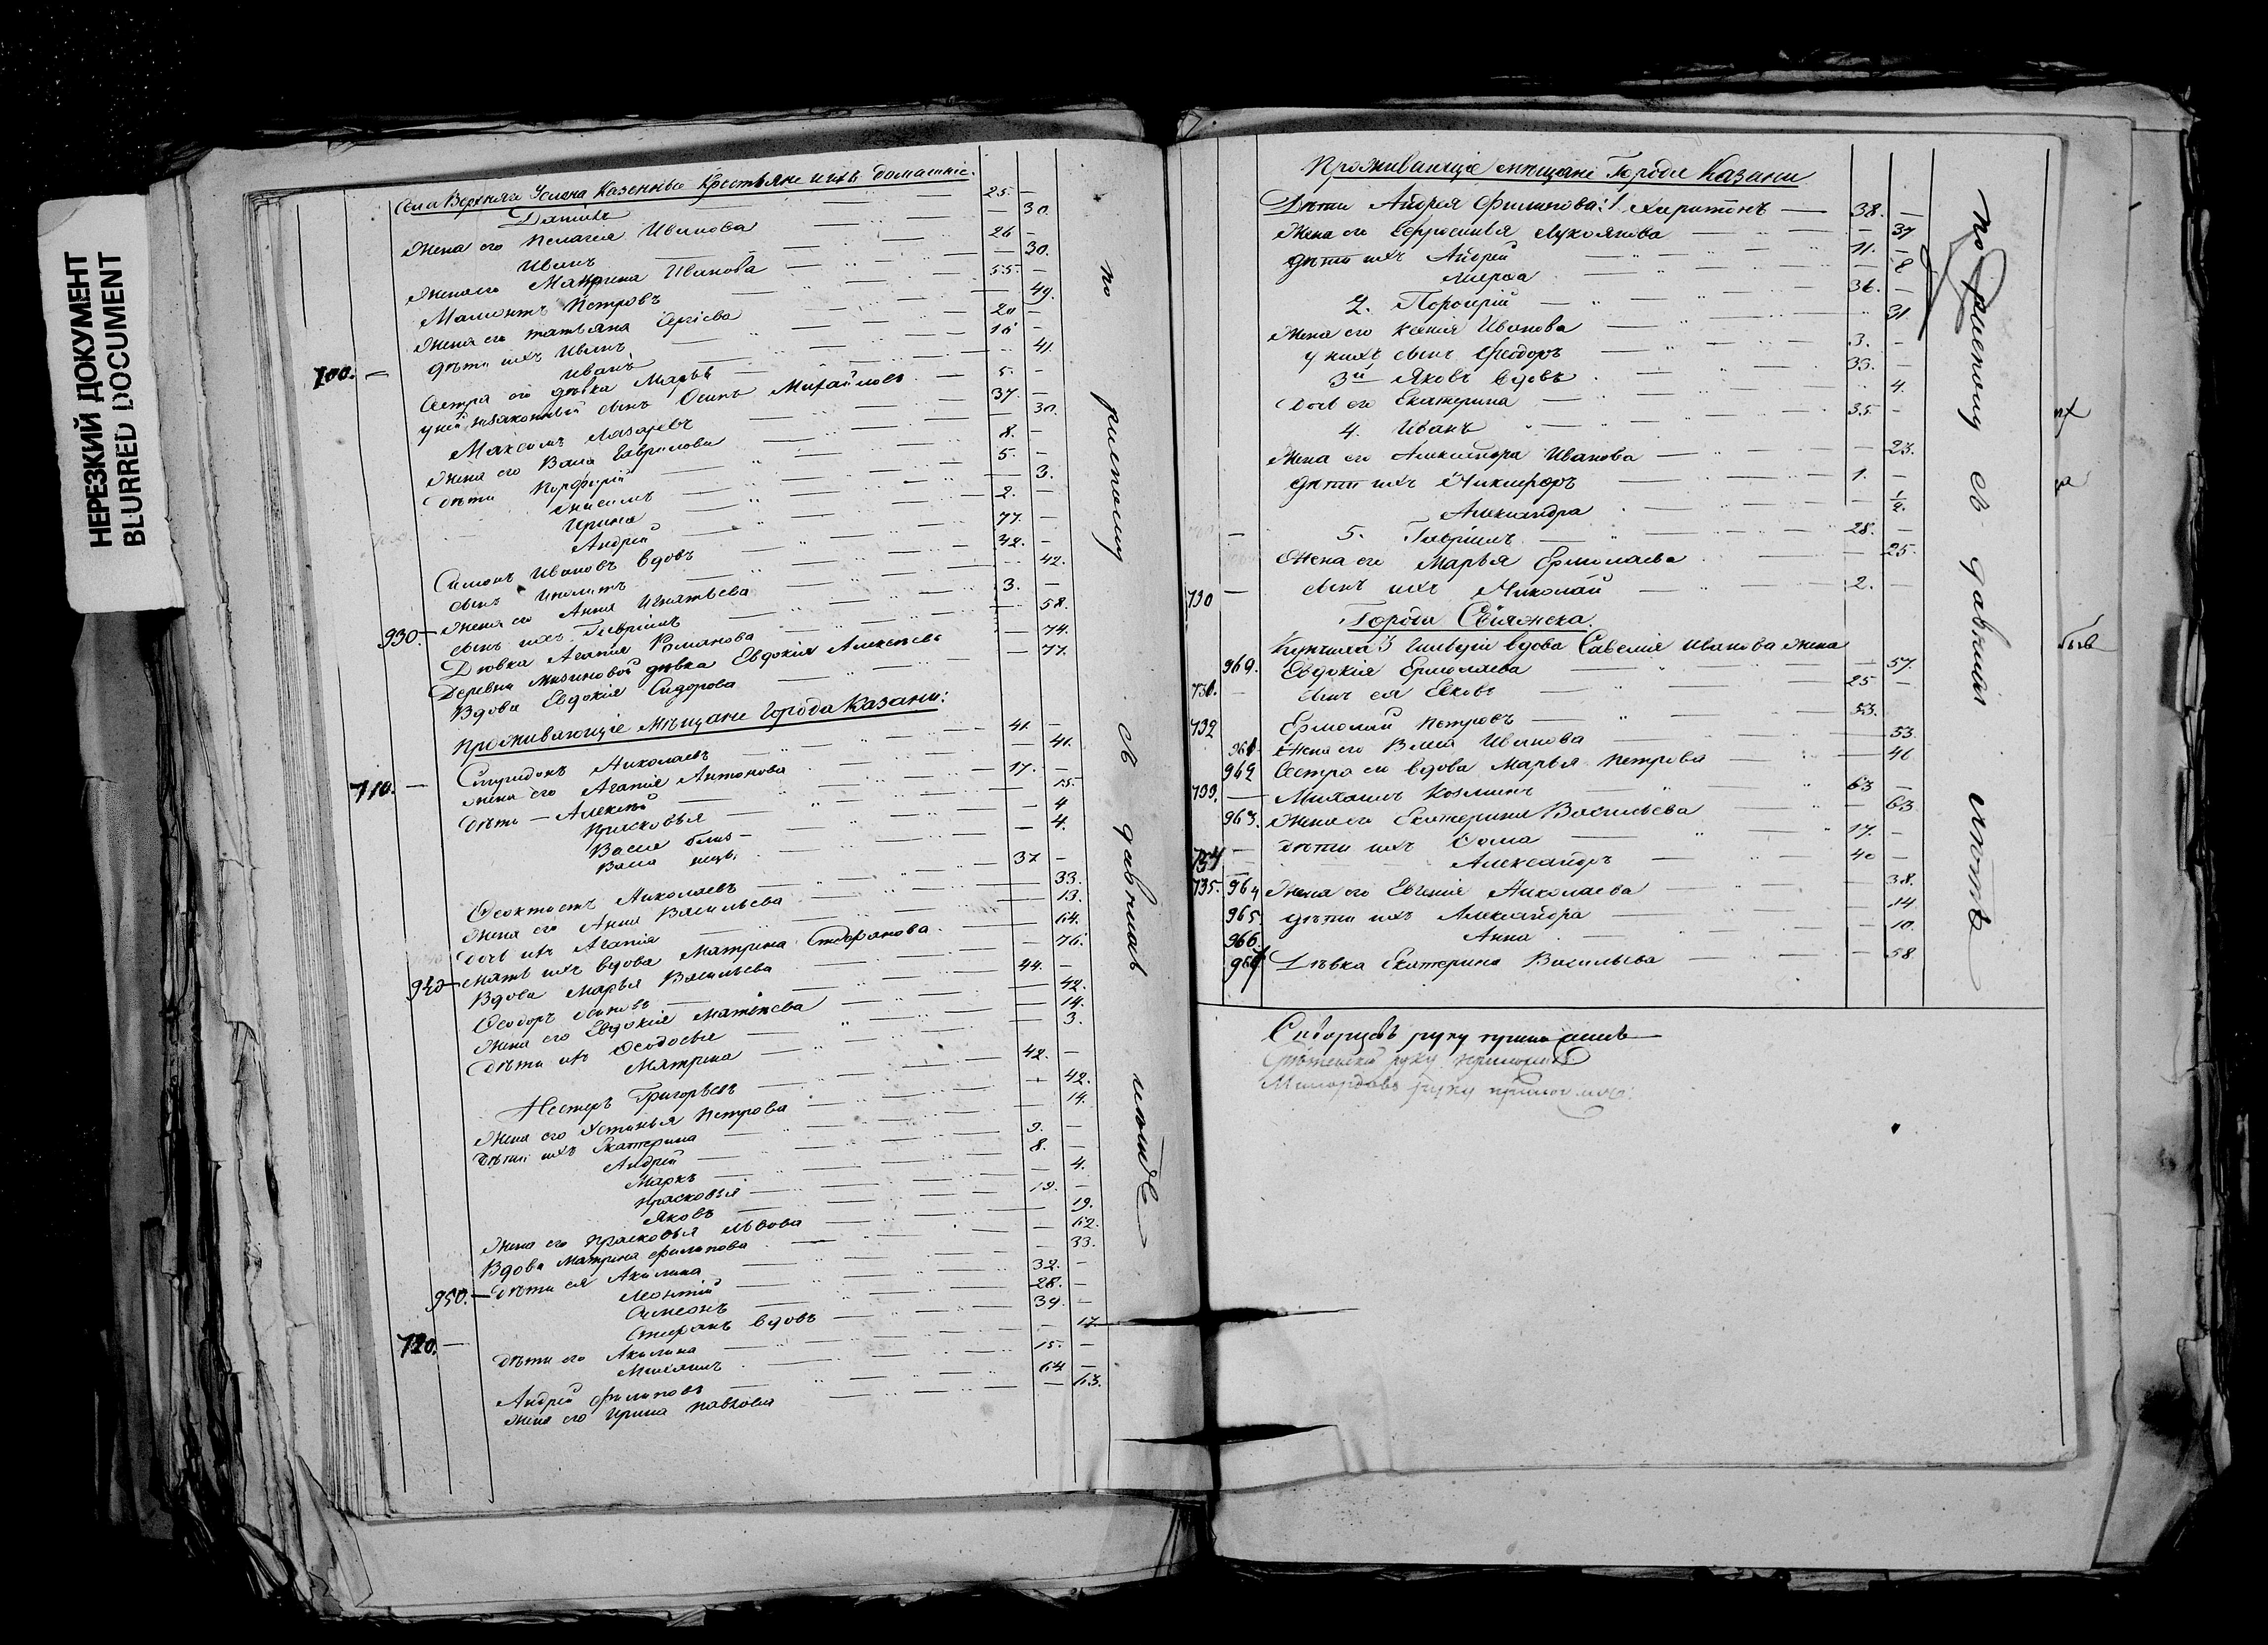 НЕРЕЗКИЙ ДОКУМЕНТ
BLURRED DOCUMENT
Села Верхняго Услона Казенные Крестьяне и ихъ домашніе.
Данилъ 25. —
Жена его Пелагея Иванова — 30.
Иванъ 26 —
Жена его Матрина Иванова — 30.
Мамонтъ Петровъ 55. —
Жена его татьяна Сергіева — 49.
дѣти ихъ Иванъ 20 —
700. — Иванъ 16 —
Сестра его дѣвка Марья — 41.
у ней незаконный сынъ Осипъ Михайловъ 5. —
Максимъ Лазаревъ 37. —
Жена его Васса Гаврилова — 30.
Дѣти Порфирій 8. —
Анисимъ 5. —
Ирина — 3.
Андрей 2. —
Симонъ Ивановъ вдовъ 77. —
сынъ Иполитъ 42. —
930 — Жена его Анна Игнатьева — 42.
сынъ ихъ Гавріилъ 3. —
Дѣвка Агапія Романова — 58.
Деревни дѣвка Евдокія Алексѣева — 74.
Вдова Евдокія Сидорова — 77.
Проживающіе Мѣщане Города Казани:
710. — Спиридонъ Николаевъ 41. —
Жена его Агапія Антонова — 41.
Дѣти — Алексѣй 17. —
Прасковья — 15.
Васса — 4
Васса — 4.
Ѳеоктистъ Николаевъ 37 —
Жена его Анна Васильева — 33.
Дочь ихъ Агапія — 13.
940 — Мать ихъ вдова Матрина Стефанова — 64.
Вдова Марья Васильева — 76.
Ѳеодоръ 44. —
Жена его Евдокія Матвѣева — 42.
Дѣти ихъ Ѳеодосья — 14.
Матрина — 3.
Нестеръ Григорьевъ 42. —
Жена его Устинья Петрова — 42.
Дѣти ихъ Екатерина — 14.
Андрей 9. —
Маркъ 8. —
Прасковья — 4.
Яковъ 19. —
Жена его Прасковья Львова — 19.
Вдова Матрина Филипова — 62.
950. — Дѣти ея Акилина — 33.
Леонтій 32. —
Симеонъ 28. —
720. — Стефанъ вдовъ 39. —
Дѣти его Акилина — 17.
15. —
Андрей Филиповъ 64 —
Жена его Ирина Павлова — 63.
по рапорту
Проживающіе мѣщане Города Казани
Дѣти Андрея Филипова: 1 Харитонъ — 38. —
Жена его Ефросинья Лукоянова — 37
дѣти ихъ Андрей 11. —
Марѳа — 8
2. Порфирій — 36. —
Жена его Ксенія Иванова 31
у нихъ сынъ Феодоръ 3. —
3й Яковъ вдовъ 33. —
Дочь его Екатерина 4.
4. Иванъ 35. —
Жена его Александра Иванова — 23.
дѣти ихъ Никифоръ 1. —
Александра — ½.
5. Гавріилъ 28. —
Жена его Марья Ермолаева — 25.
730 — сынъ ихъ Николай 2. —
Города Свіяжска.
Купчиха 3 Гильдіи вдова Савелія Иванова жена
960. Евдокія Ермолаева — 57.
731. — сынъ ея Яковъ 25 —
732 Ермолай Петровъ 53.
961 Жена его Васса Иванова — 53.
962 Сестра его вдова Марья Петрова — 46
733. — Михаилъ Козминъ 63 —
963. Жена его Екатерина Васильева — 63.
734 — Дѣти ихъ Ѳома 17. —
735. Александръ 40 —
964 Жена его Евгенія Николаева — 38.
965. дѣти ихъ Александра — 14
966. Анна — 10.
967 Дѣвка Екатерина Васильева — 58
руку приложилъ
руку приложилъ
руку приложилъ